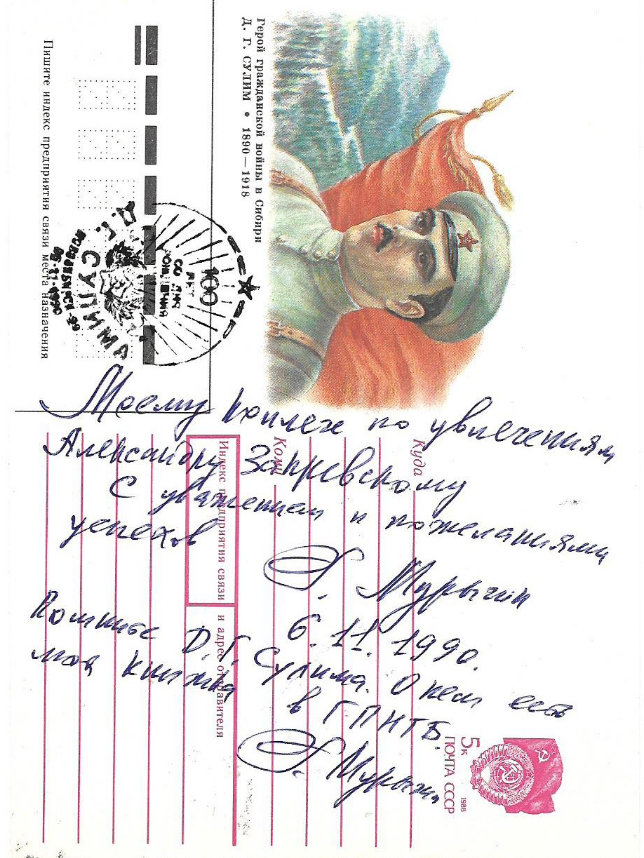 Герой гражданской войны в Сибири
Д. Г. СУЛИМ • 1890—1918
Пишите индекс предприятия связи места назначения
100
ЛЕТ
СО ДНЯ
РОЖДЕНИЯ
Д. Г. СУЛИМА
Моему коллеге по увлечениям
Александру Закревскому
С уважением и пожеланиями
успехов
Мурыгин
6.11.1990.
Помните Д.Г. Сулима. О нем есть
моя книжка в ГПНТБ.
Куда
Кому
Индекс предприятия связи и адрес отправителя
5к
1988
ПОЧТА СССР